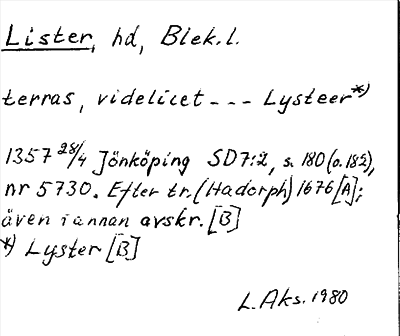 Lister, hd, Blek. l.
terras, videlicet - - - Lysteer*)
1357 28/4 Jönköping SD7:2, s. 180 (o. 182),
nr 5730. Efter tr. (Hadorph) 1676 [A];
även i annan avskr. [B]
*) Lyster [B]
L. Aks. 1980